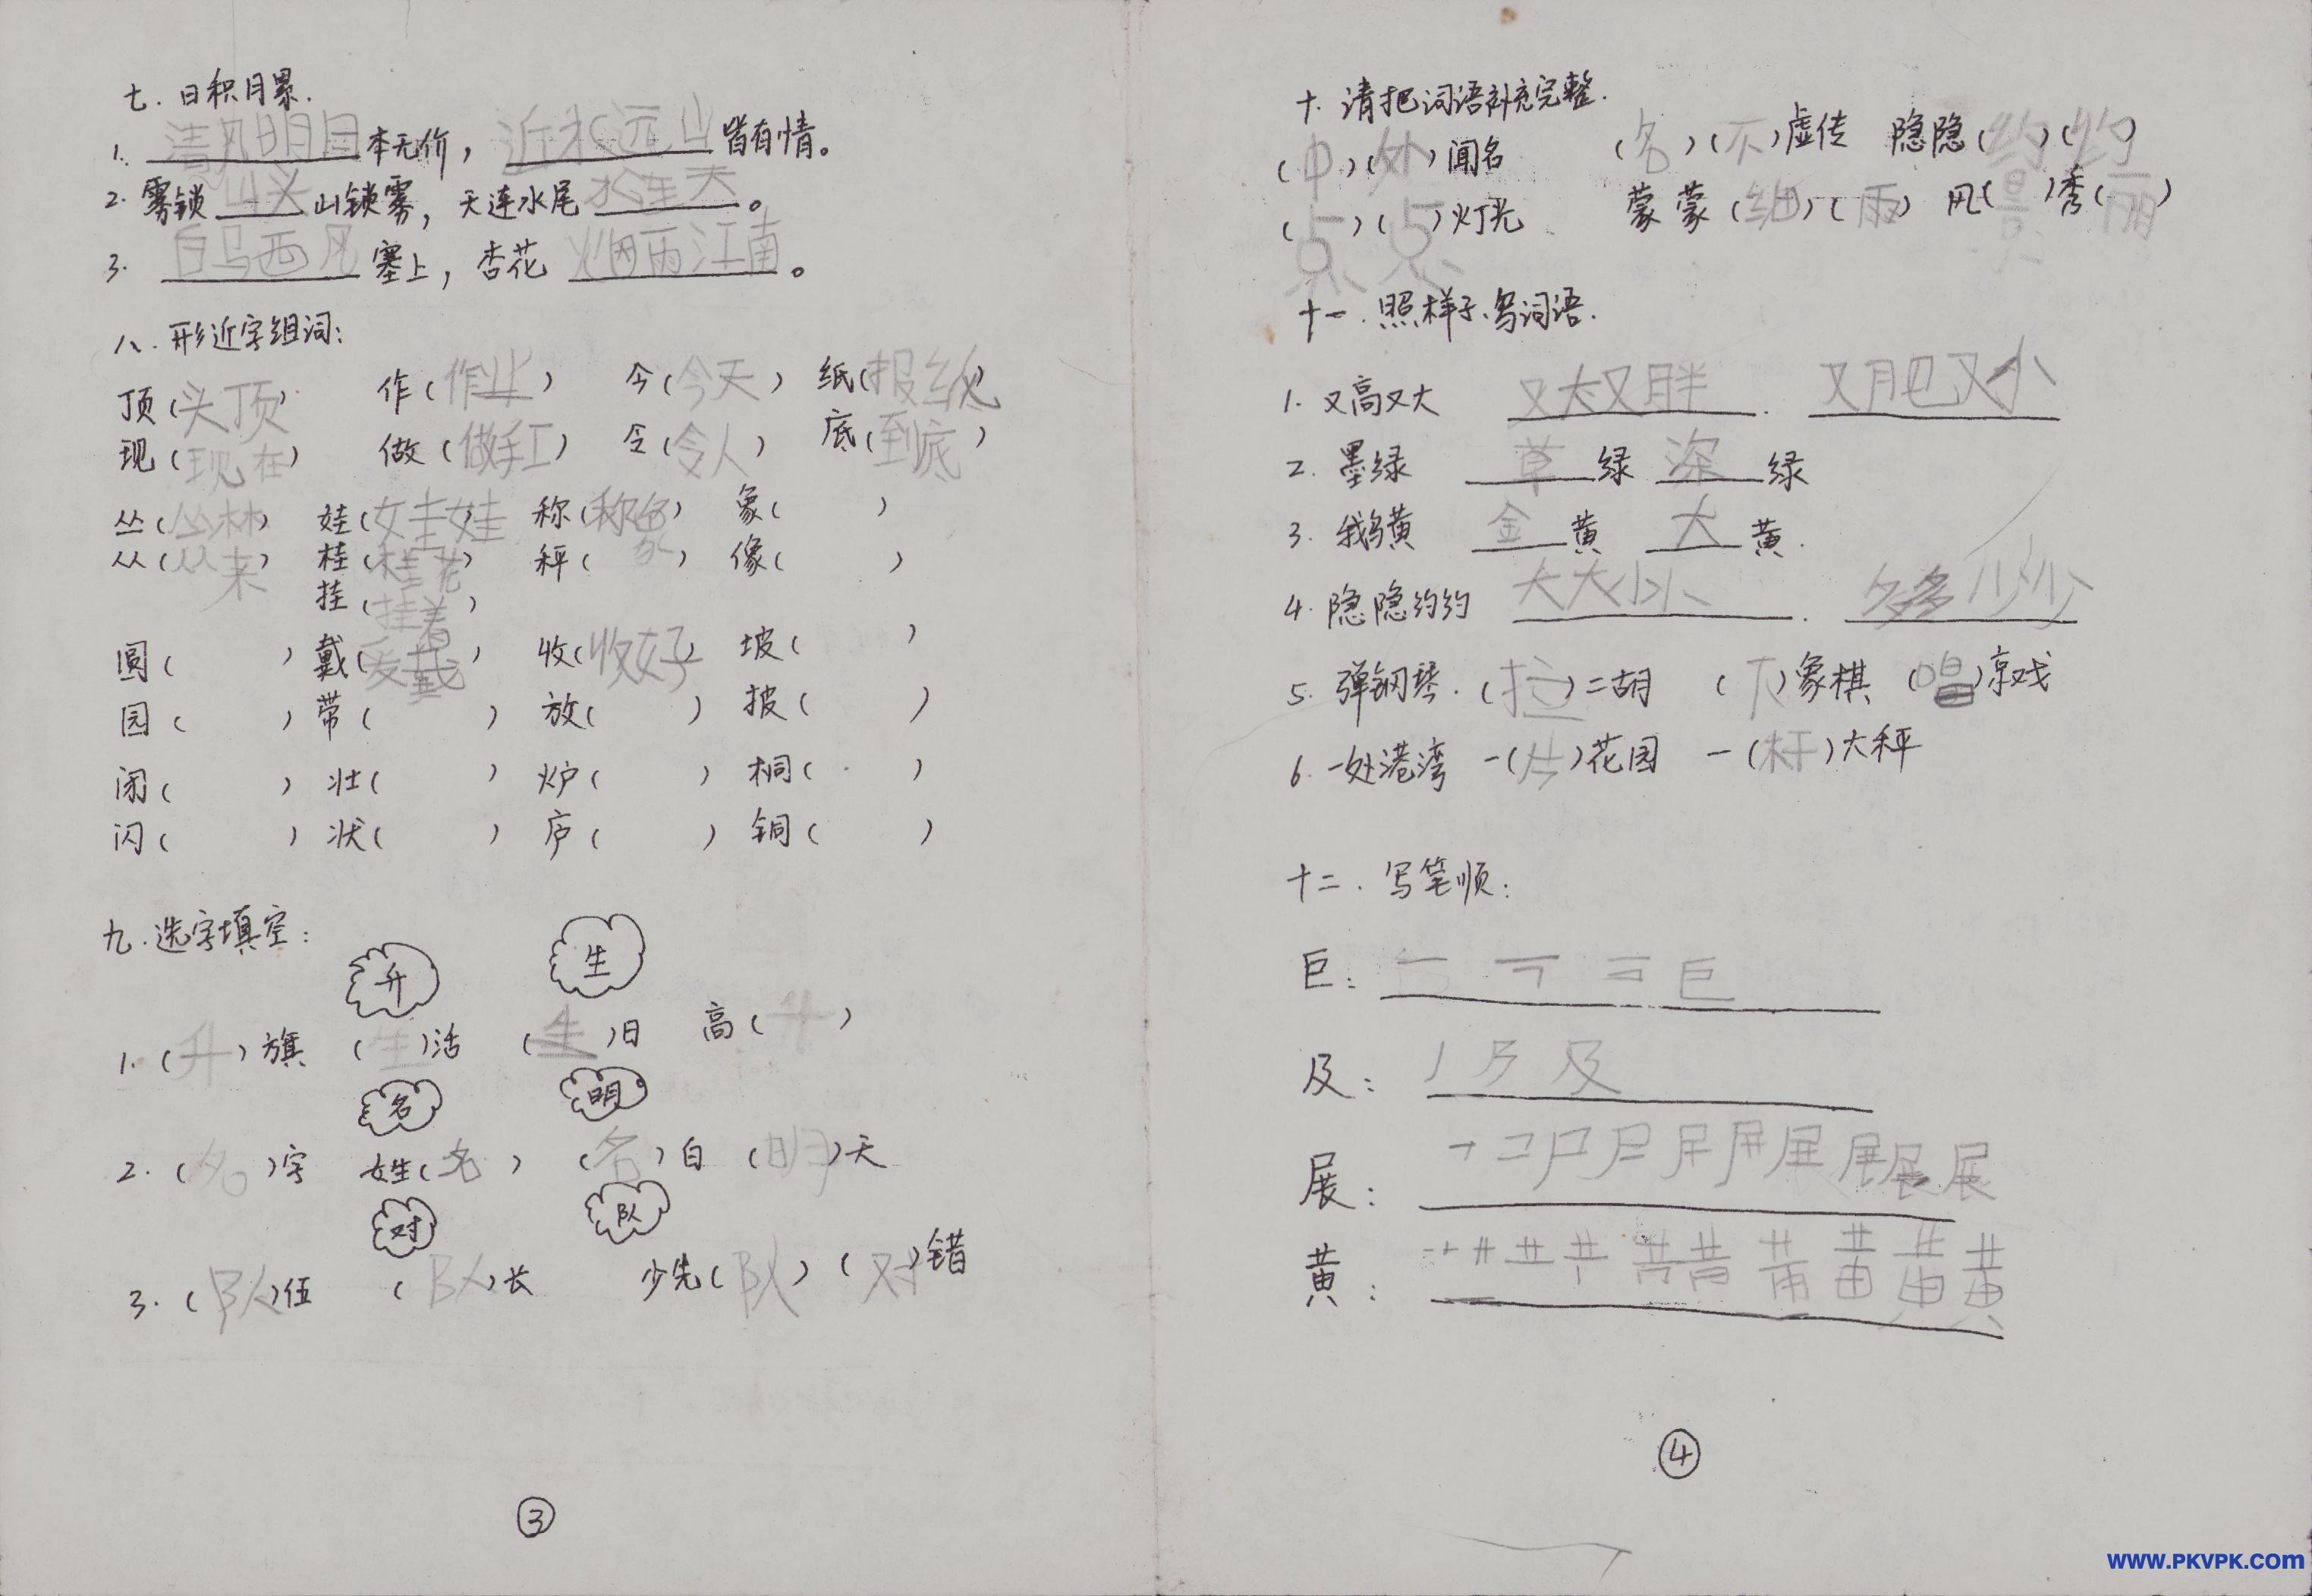 七.日积月累.
1. 清风明月本无价，近水远山皆有情。
2. 雾锁山头山锁雾，天连水尾水连天。
3. 白马西风塞上，杏花烟雨江南。
八.形近字组词：
顶(头顶) 作(作业) 今(今天) 纸(报纸)
现(现在) 做(做手工) 令(令人) 底(到底)
丛(丛林) 娃(女圭娃) 称(称象) 象( )
从(从来) 桂(桂花) 秤( ) 像( )
挂(挂着)
圆( ) 戴(爱戴) 收(收好) 坡( )
园( ) 带( ) 放( ) 披( )
闭( ) 壮( ) 炉( ) 桐( )
闪( ) 状( ) 庐( ) 铜( )
九.选字填空：
升 生
1.(升)旗 (生)活 (生)日 高(升)
名 明
2.(名)字 姓(名) (名)白 (明)天
对 队
3.(队)伍 (队)长 少先(队) (对)错
③
十.请把词语补充完整.
(中)(处)闻名 (名)(不)虚传 隐隐(约)(约)
(点)(点)灯光 蒙蒙(细)(雨) 风(景)秀(丽)
十一.照样子、写词语.
1.又高又大 又大又胖. 又肥又小
2.墨绿 草绿 深绿
3.鹅黄 金黄 大黄.
4.隐隐约约 大大小小. 多多少少
5.弹钢琴.(拉)二胡 (下)象棋 (唱)京戏
6.一处港湾 一(片)花园 一(杆)大秤
十二.写笔顺：
巨：
及：
展：
黄：
④
www.PKVPK.com